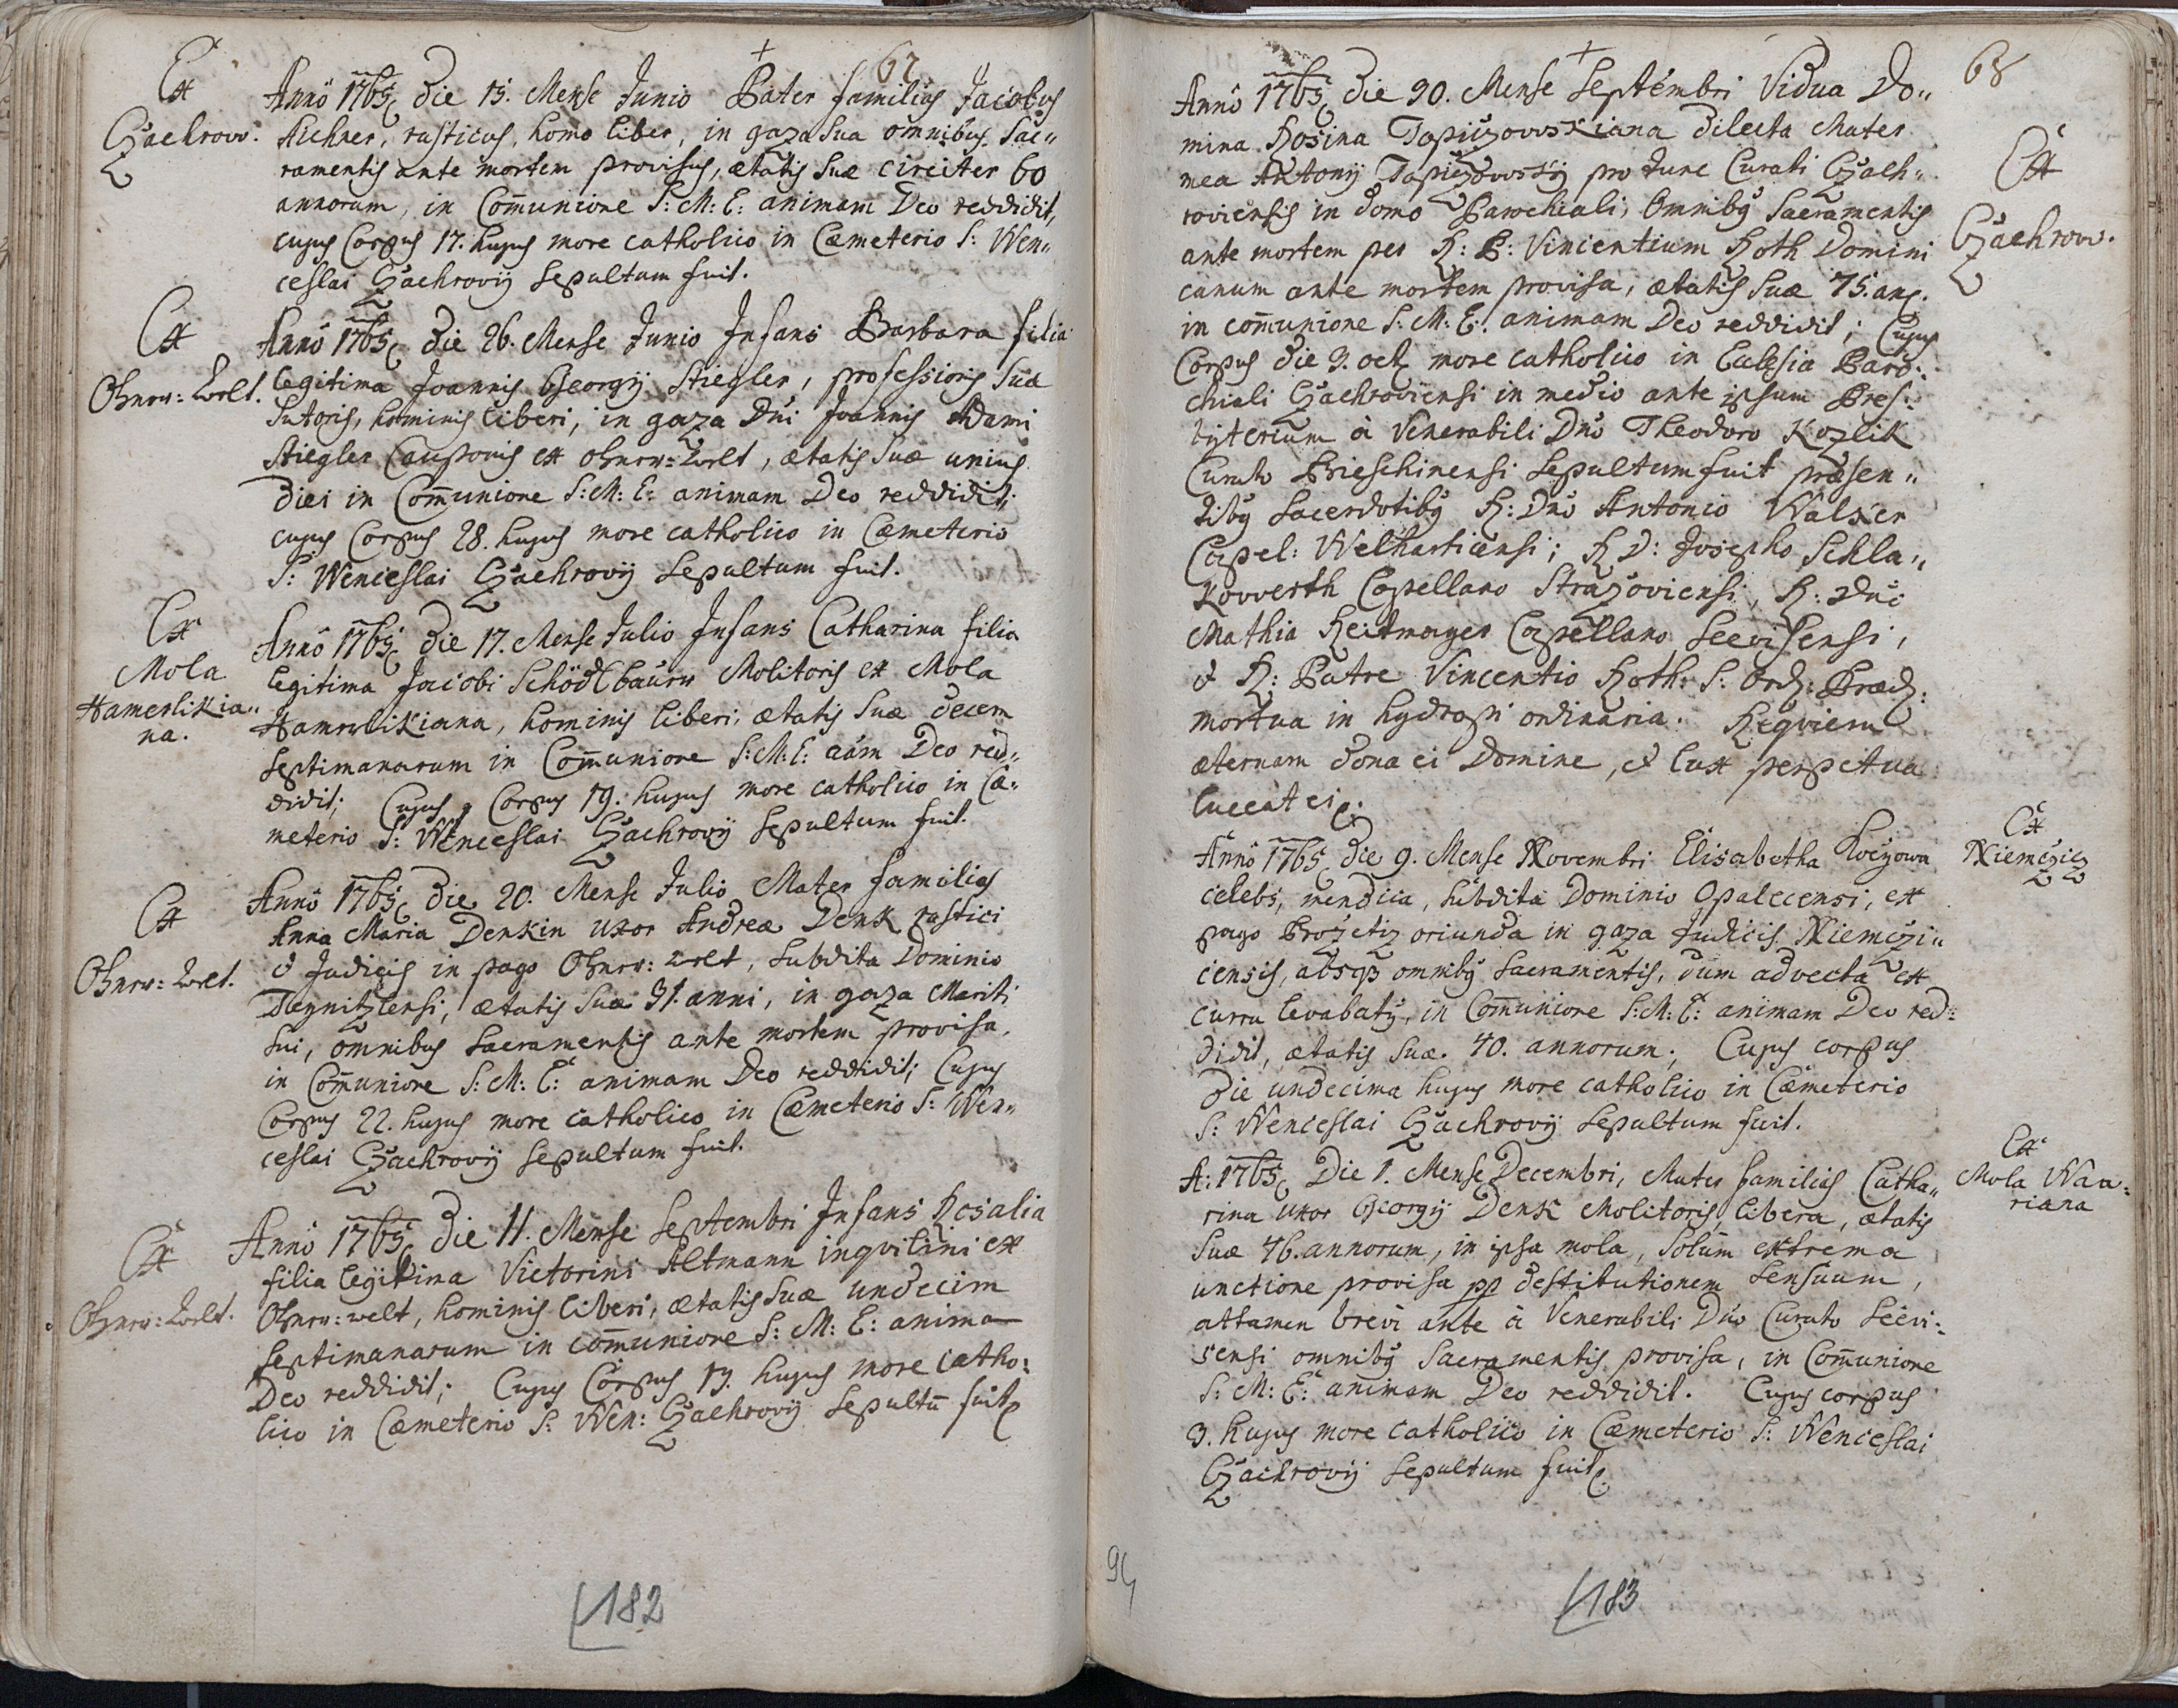 67
Ex
Czachrow.
Annô 1765 die 15. Mense Junio Pater familias Jacobus
Aichner, rusticus, homo liber, in gaza sua omnibus Sac„
ramentis ante mortem provisus, ætatis suæ circiter 60
annorum, in Com̄unione S: M: E: animam Deo reddidit,
cujus Corpus 17. hujus more catholico in Cæmeterio S: Wen„
ceslai Czachrovij sepultum fuit.
Ex
Ohnrw: Welt.
Annô 1765 die 26. Mense Junio Infans Barbara filia
legitima Joannis Georgij Stiegler, professioris suæ
Sutoris, hominis liberi, in gaza Dni Joannis Adami
Stiegler Cauponis ex Ohnrw: Welt, ætatis suæ unius
diei in Com̄unione S: M: E: animam Deo reddidit;
cujus Corpus 28. hujus more catholico in Cæmeterio
S: Wenceslai Czachrovij Sepultum fuit.
Ex
Mola
Hamerlikia„
na.
Annô 1765 die 17. Mense Julio Infans Catharina filia
legitima Jacobi Schödlbaurn Molitoris ex Mola
Hamrlikiana, hominis liberi, ætatis suæ decem
septimanarum in Com̄unione S: M: E: aām Deo red„
didit; Cujus Corpus 19. hujus more catholico in Cæ„
meterio S: Wenceslai Czachrovij Sepultum fuit.
Ex
Ohnrw: Welt.
Annô 1765 die 20. Mense Julio Mater familias
Anna Maria Denkin uxor Andreæ Denk rustici
& Judicis in pago Ohnrw: Welt, Subdita Dominio
Deynitzlensi, ætatis suæ 31. anni, in gaza Mariti
sui, omnibus Sacramentis ante mortem provisa,
in Com̄unione S: M: E: animam Deo reddidit; Cujus
Corpus 22. hujus more catholico in Cæmeterio S: Wen„
ceslai Czachrovij Sepultum fuit.
Ex
Ohnrw: Welt.
Annô 1765 die 11. Mense Septembri Infans Rosalia
filia legitima Victorini Altmann inqvilini ex
Ohnrw: welt, hominis liberi, ætatis suæ undecim
septimanarum in com̄unione S: M: E: anima
Deo reddidit; Cujus Corpus 13. hujus more catho:
lico in Cæmeterio S: Wen: Czachrovij Sepultū fuit
182
68
Ex
Czachrow.
Annô 1765 die 30. Mense Septembri Vidua Do„
mina Rosina Topiczowskiana dilecta Mater
mea Antonij Topiczowsky pro tunc Curati Czach„
roviensis in domo Parochiali, Omnibg Sacramentis
ante mortem per R: P: Vincentium Roth Domini
canum ante mortem provisa, ætatis suæ 75. an.
in com̄unione S: M: E: animam Deo reddidit; Cujus
Corpus die 3. oct more catholico in Eclesia Paro:
chiali Czachroviensi in medio ante ipsum Pres:
byterium à Venerabili Dno Theodoro Kozlik
Curato Prieschinensi Sepultum fuit præsen„
tibg Sacerdotibg R: Dno Antonio Walser
Capel: Welharticensi; R D: Josepho Schla„
kowerth Capellano Strazoviensi, R: Dno
Mathia Reitmayer Capellano Seewisensi,
& R: Patre Vincentio Roth: S: Ord: Præd:
mortua in hydropi ordinaria. Reqviem
æternam dona ei Domine, & lux perpetua
luceat ei.
Ex
Niemcicz
Annô 1765 die 9. Mense Novembri Elisabetha
celebs, mendica, subdita Dominio Opalecensi, ex
pago oriunda in gaza Judicis Niemczi„
censis, absqз omnibg Sacramentis, dum advecta ex
curru levabatg, in Com̄unione S: M: E: animam Deo red:
didit, ætatis suæ 40. annorum; Cujus corpus
die undecima hujus more catholico in Cæmeterio
S: Wenceslai Czachrovij Sepultum fuit.
Ex
Mola Waw:
riana
A: 1765 Die 1. Mense Decembri, Mater familias Catha„
rina uxor Georgij Denk Molitoris, libera, ætatis
suæ 46. annorum, in ipsa mola, solum extrema
unctione provisa pp destitutionem Sensuum,
attamen brevi ante à Venerabili Dno Curato Seewi:
sensi omnibg Sacramentis provisa, in Com̄unione
S: M: E: animam Deo reddidit. Cujus corpus
3. hujus more catholico in Cæmeterio S: Wenceslai
Czachrovij Sepultum fuit.
183